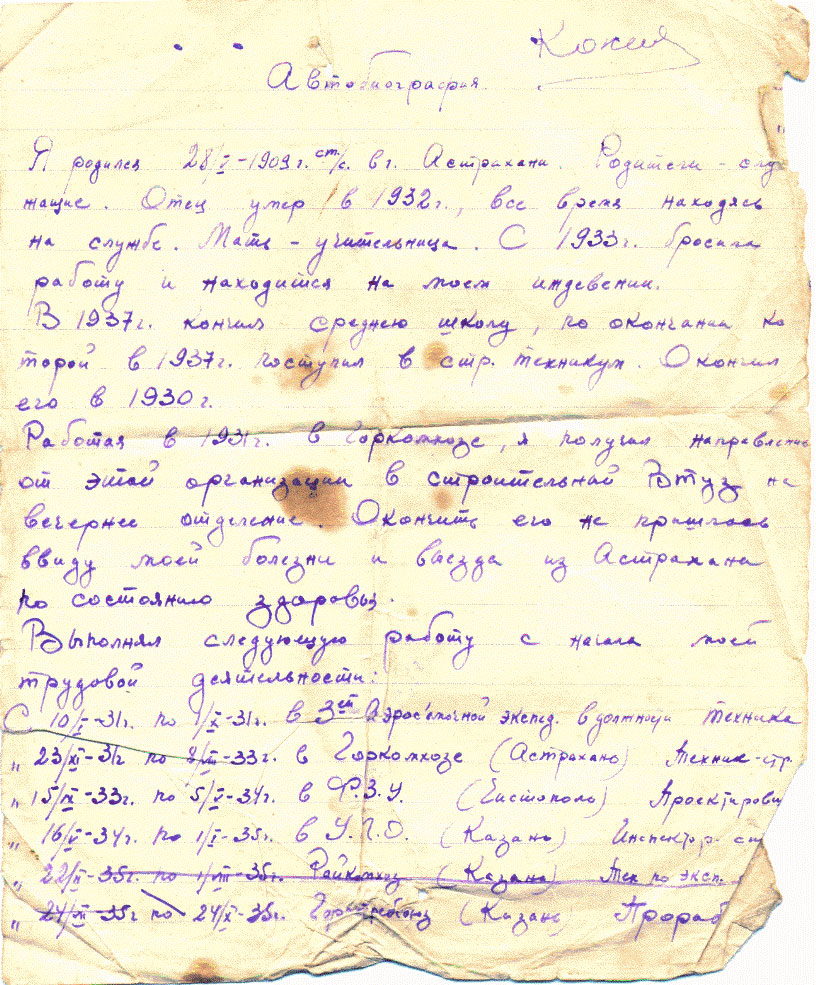 Копия
Автобиография.
Я родился 28/V-1909г. ст/с. в г. Астрахани. Родители - слу
жащие. Отец умер в 1932г., все время находясь
на службе. Мать - учительница. С 1933г. бросила
работу и находится на моем иждевении.
В 1937г. кончил среднею школу, по окончании ко
торой в 1937г. поступил в стр. техникум. Окончил
его в 1930г.
Работая в 1931г. в Горкомхозе, я получил направление
от этой организации в строительный Втуз на
вечернее отделение. Окончить его не пришлось
ввиду моей болезни и выезда из Астрахани
по состоянию здоровья.
Выполнял следующую работу с начала моей
трудовой деятельности:
С 10/V-31г. по 1/X-31г. в 3ей Аэрос'емочной экспед. в должности техника
" 23/XI-31г по 8/VII-33г. в Горкомхозе (Астрахань) Техник-стр.
" 15/IX-33г. по 5/V-34г. в Ф.З.У. (Чистополь) Проектиров
" 16/V-34г. по 1/V-35г. в У.П.О. (Казань) Инспектор. ст
" 22/II-35г. по 1/VII-35г. Райкомхоз (Казань) Тех по эксп.
" 24/VII-35г по 24/X-35г. (Казань) Прораб